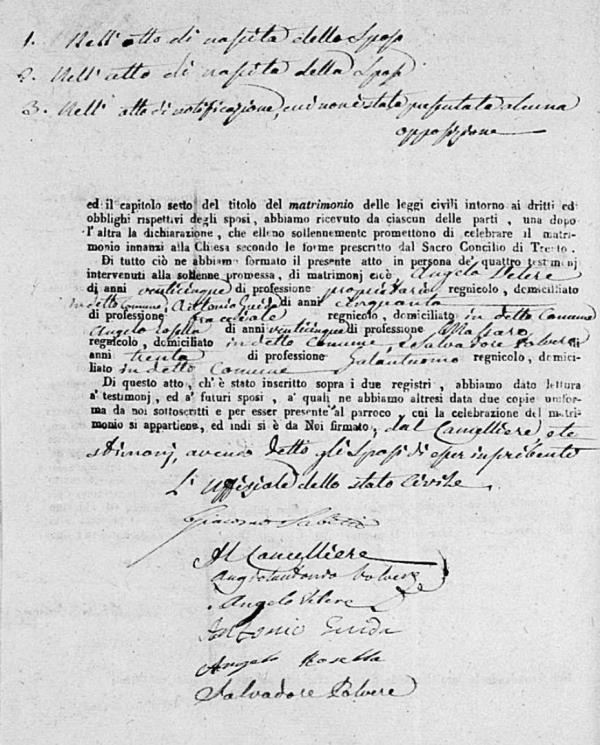 1. Nell' atto di nascita dello Sposo
2. Nell' atto di nascita della Sposa
3. Nell' atto di notificazione, cui non è stata presentata alcuna
opposizione
ed il capitolo sesto del titolo del matrimonio delle leggi civili intorno ai dritti ed
obblighi rispettivi degli sposi, abbiamo ricevuto da ciascun delle parti, una dopo
l'altra la dichiarazione, che elleno sollennemente promettono di celebrare il matri-
monio innanzi alla Chiesa secondo le forme prescritto dal Sacro Concilio di Trento.
Di tutto ciò ne abbiamo formato il presente atto in persona de' quattro testimonj
intervenuti alla sollenne promessa, di matrimonj cioè, Angelo Velere
di anni venticinque di professione proprietario regnicolo, domiciliato
in detto Comune, Antonio Guida di anni cinquanta
di professione regnicolo, domiciliato in detto Comune
Angelo Rosella di anni venticinque di professione Massaro
regnicolo, domiciliato in detto Comune, e Salvadore Polvere di
anni trenta di professione Galantuomo regnicolo, domici-
liato in detto Comune
Di questo atto, ch'è stato inscritto sopra i due registri, abbiamo dato lettura
a' testimonj, ed a' futuri sposi, a' quali ne abbiamo altresì data due copie unifor-
ma da noi sottoscritti e per esser presente al parroco, cui la celebrazione del matri-
monio si appartiene, ed indi si è da Noi firmato, dal Cancelliere, e te
stimonj, avendo detto gli Sposi di esser
L' Uffiziale dello stato Civile
Giacomo
Il Cancelliere
Angiolantonio Polvere
Angelo Velere
Antonio Guida
Angelo Rosella
Salvadore Polvere